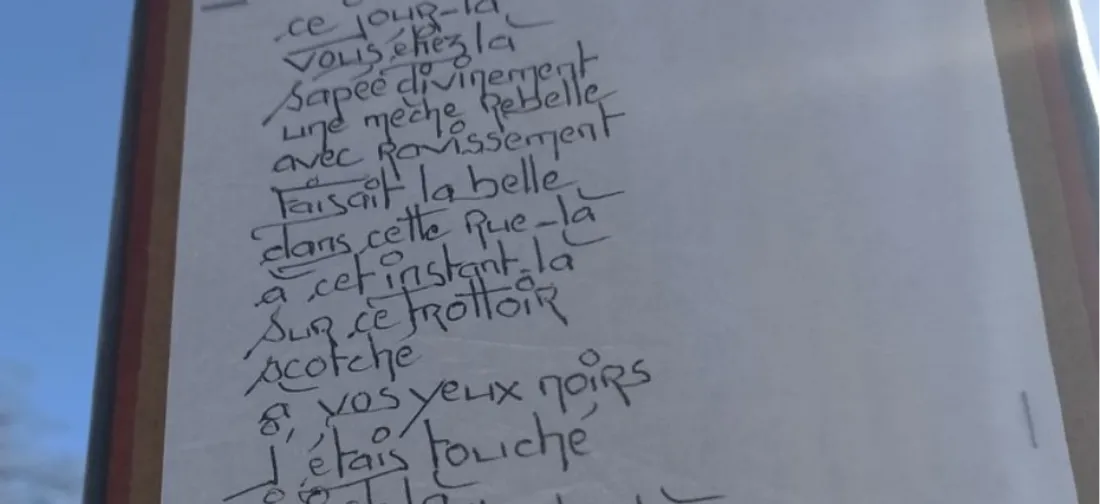 ce jour-là
vous étiez là
sapée divinement
une mèche rebelle
avec ravissement
faisait la belle
dans cette rue-là
à cet instant-là
sur ce trottoir
scotché
à vos yeux noirs
j'étais touché